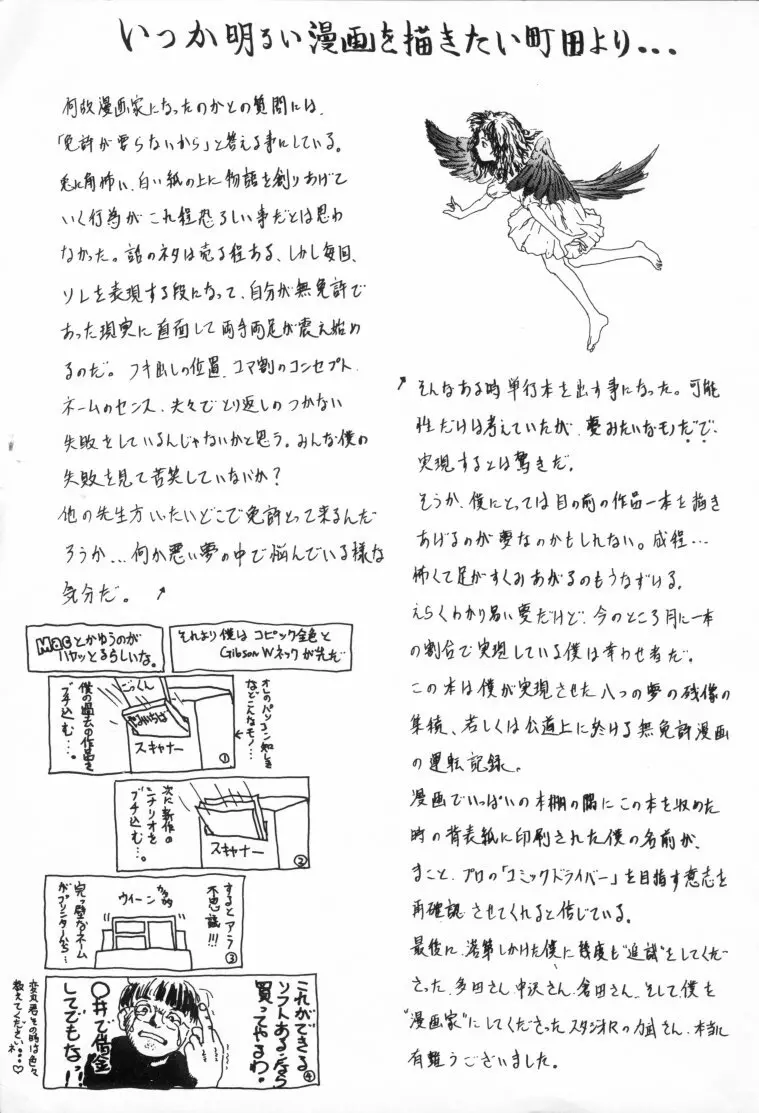 いつか明るい漫画を描きたい町田より...
何故漫画家になったのかとの質問には、
「免許が要らないから」と答える事にしている。
兎に角怖い、白い紙の上に物語を創りあげて
いく行為がこれ程恐ろしい事だとは思わ
なかった。話のネタは売る程ある、しかし毎回、
ソレを表現する段になって、自分が無免許で
あった現実に直面して両手両足が震え始め
るのだ。フキ出しの位置、コマ割のコンセプト、
ネームのセンス、夫々でとり返しのつかない
失敗をしているんじゃないかと思う。みんな僕の
失敗を見て苦笑していないか?
他の先生方いったいどこで免許とって来るんだ
ろうか...何か悪い夢の中で悩んでいる様な
気分だ。
そんなある時単行本を出す事になった。可能
性だけは考えていたが、夢みたいなモノだで、
実現するとは驚きだ。
そうか、僕にとっては目の前の作品一本を描き
あげるのが夢なのかもしれない。成程...
怖くて足がすくみあがるのもうなずける。
えらくわかり易い夢だけど、今のところ月に一本
の割合で実現している僕は幸わせ者だ。
この本は僕が実現させた八つの夢の残像の
集積、若しくは公道上に於ける無免許漫画
の運転記録。
漫画でいっぱいの本棚の隅にこの本を収めた
時の背表紙に印刷された僕の名前が、
まこと、プロの「コミックドライバー」を目指す意志を
再確認させてくれると信じている。
最後に、落第しかけた僕に幾度も"追試"をしてくだ
さった、多田さん、中沢さん、倉田さん、そして僕を
"漫画家"にしてくださったスタジオRの力武さん、本当に
有難うございました。
Macとかゆうのが
ハヤッとるらしいな。
それより僕はコピック金色と
Gibson Wネックが先だ
僕の過去の作品を
ブチ込む...。
ごっくん
スキャナー
①
オレのパソコン知しき
などこんなモノ...
次に新作の
シナリオを
ブチ込む...。
スキャナー
②
するとアラ
不思議!!!
ウイーン
完っ璧なネーム
がプリンターから...
③
これができる
ソフトあるなら
買ってやるわ。
〇井で借金
してでもなっ!!
④
教えてくださいネ...♡